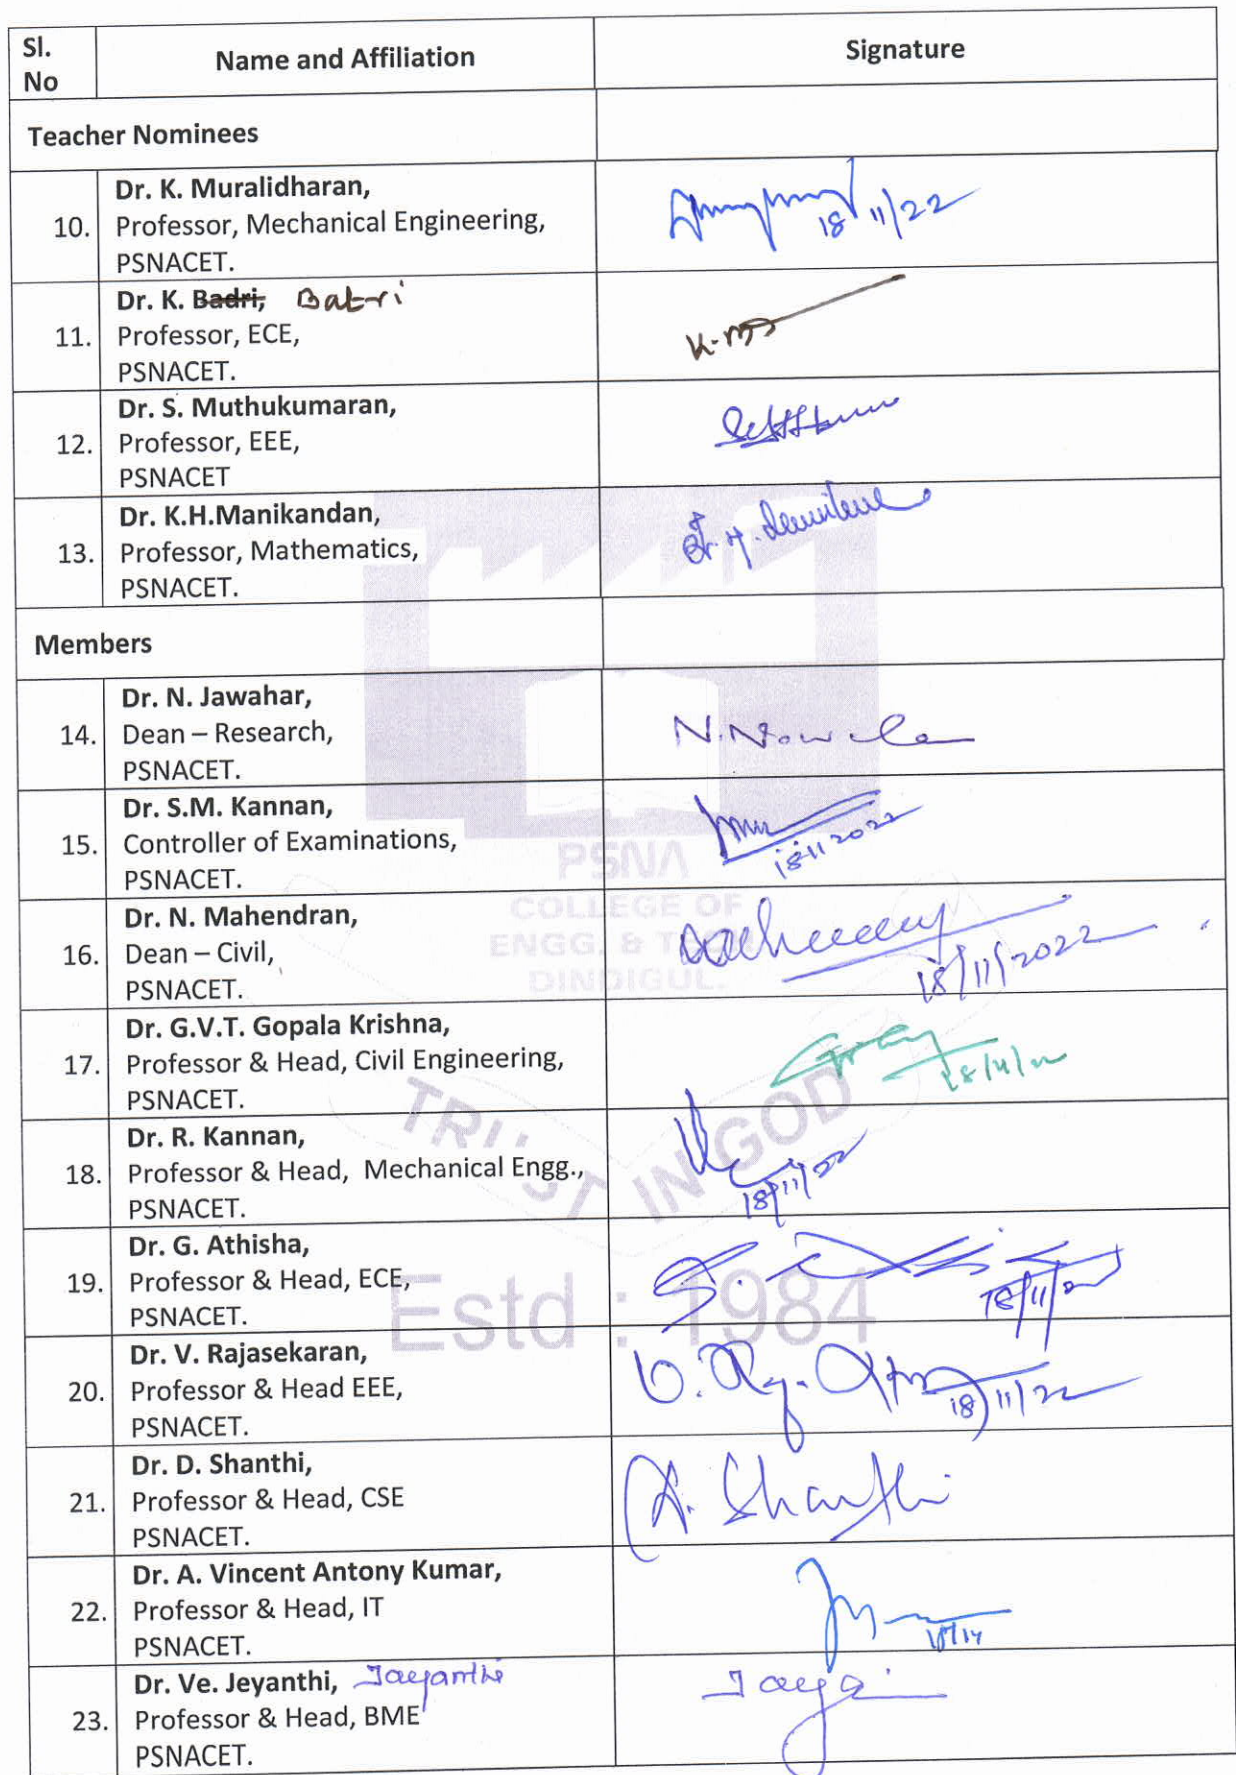 Sl.
No
Name and Affiliation
Signature
Teacher Nominees
10.
Dr. K. Muralidharan,
Professor, Mechanical Engineering,
PSNACET.
18 11/22
11.
Dr. K. Badri, Batri
Professor, ECE,
PSNACET.
12.
Dr. S. Muthukumaran,
Professor, EEE,
PSNACET
13.
Dr. K.H.Manikandan,
Professor, Mathematics,
PSNACET.
Members
14.
Dr. N. Jawahar,
Dean – Research,
PSNACET.
15.
Dr. S.M. Kannan,
Controller of Examinations,
PSNACET.
18 11 2022
PSNA
COLLEGE OF
ENGG. & TECH
DINDIGUL.
16.
Dr. N. Mahendran,
Dean – Civil,
PSNACET.
18/11/2022
17.
Dr. G.V.T. Gopala Krishna,
Professor & Head, Civil Engineering,
PSNACET.
TRUST IN GOD
18.
Dr. R. Kannan,
Professor & Head, Mechanical Engg.,
PSNACET.
18/11/22
19.
Dr. G. Athisha,
Professor & Head, ECE,
PSNACET.
Estd : 1984
20.
Dr. V. Rajasekaran,
Professor & Head EEE,
PSNACET.
18/11/22
21.
Dr. D. Shanthi,
Professor & Head, CSE
PSNACET.
D. Shanthi
22.
Dr. A. Vincent Antony Kumar,
Professor & Head, IT
PSNACET.
23.
Dr. Ve. Jeyanthi, Jayanthi
Professor & Head, BME
PSNACET.